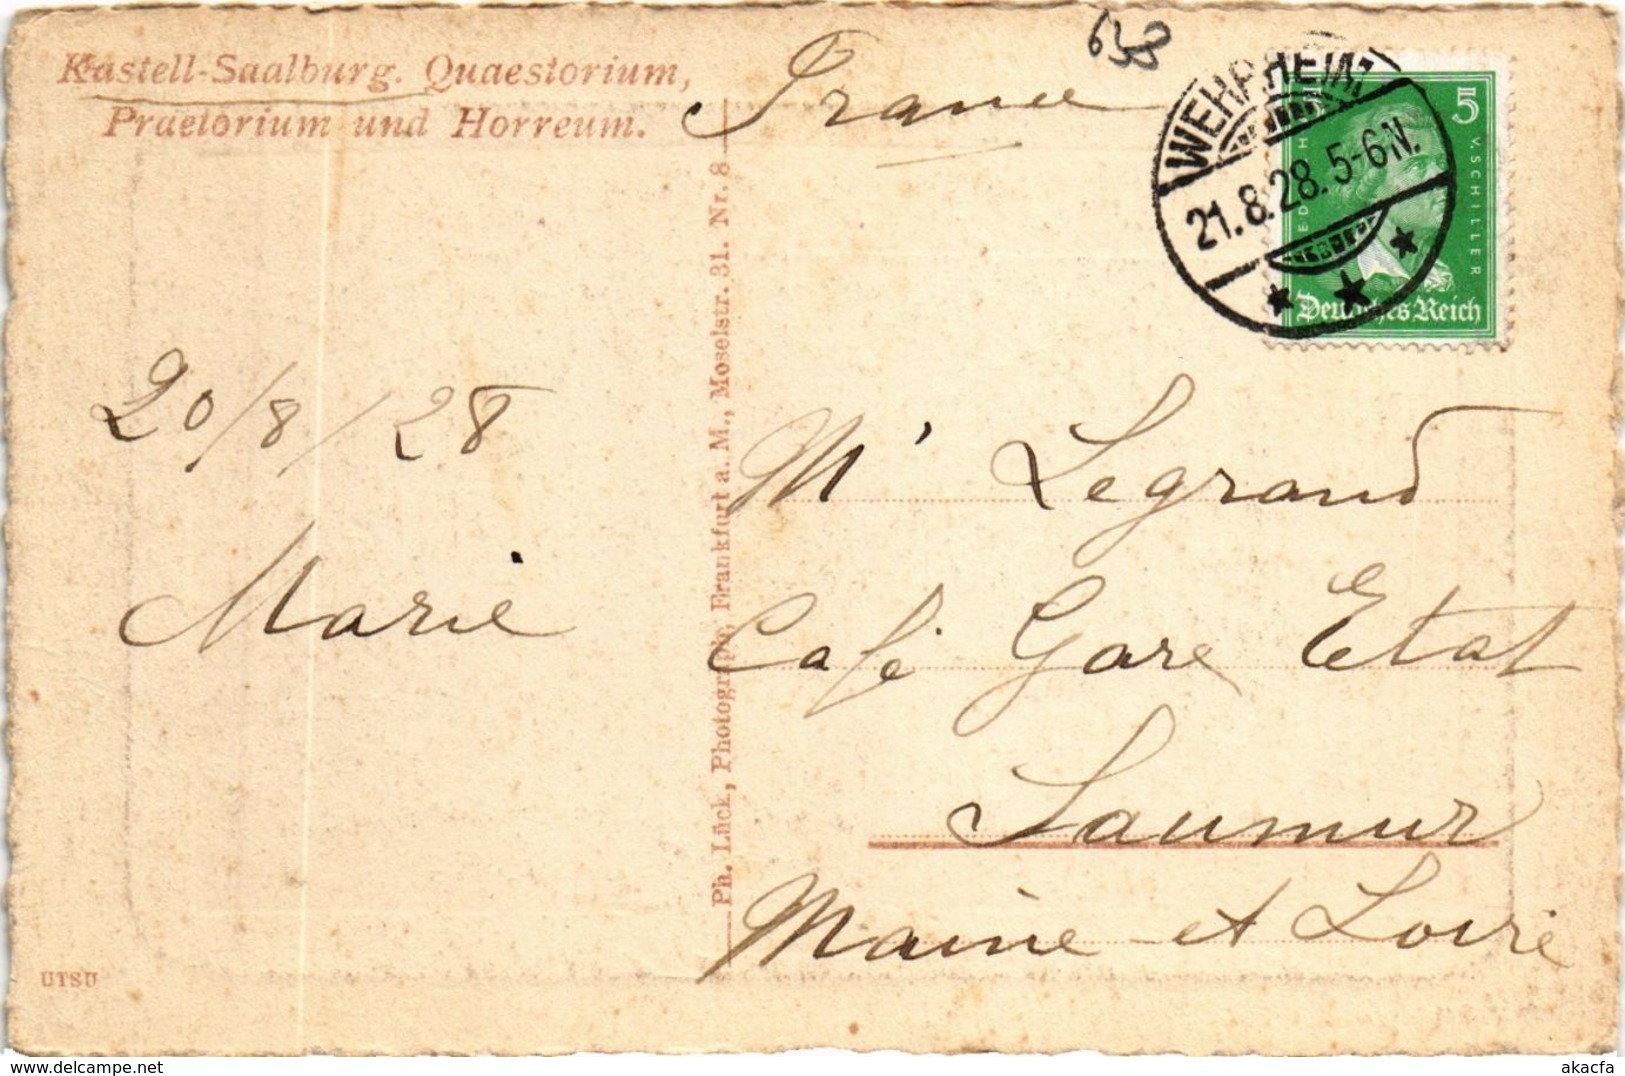 Kastell-Saalburg. Quaestorium,
Praetorium und Horreum.
France
638
WEHRHEIM
21.8.28.5-6N.
5
V. SCHILLER
Deutsches Reich
20/8/28
Marie
Ph. Lück, Photographie, Frankfurt a. M., Moselstr. 31. Nr. 8
Mr Legrand
Café Gare Etat
Saumur
Maine et Loire
UTSU
akpool.co.uk
akacfa